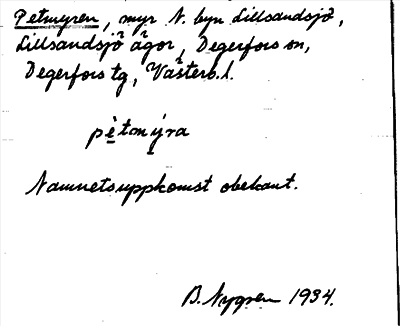 Petmyren, myr N. byn Lillsandsjö,
Lillsandsjö ägor, Degerfors sn,
Degerfors tg, Västerb. l.
pètmỳra
Namnets uppkomst obekant.
B. Nygren 1934.